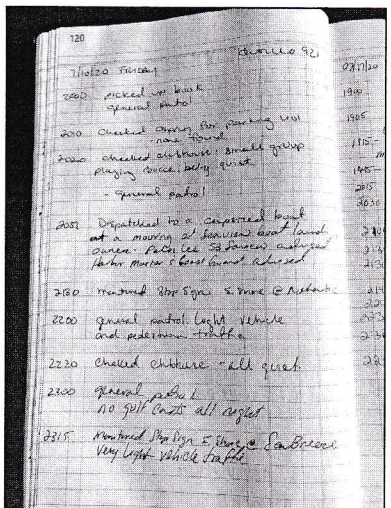 120
921
7/10/20 FRIDAY
2000 picked up book
general patrol
2010 Checked for parking viol
- none found
2020 checked clubhouse; small group
playing quiet
- general patrol
Dispatched to a capsized boat
at a mooring at Seaview boat
owner - advised
Harbor Master & Coast Guard advised
2130 monitored Stop Sign S. Shore @
2200 general patrol. Light vehicle
and pedestrian traffic
2230 checked clubhouse - all quiet.
2300 general patrol
no golf carts all
2315 Monitored Stop Sign E Shore @ Sea Breeze
Very light vehicle traffic
07/17/20
1900
1905
1915
1945
2015
2030